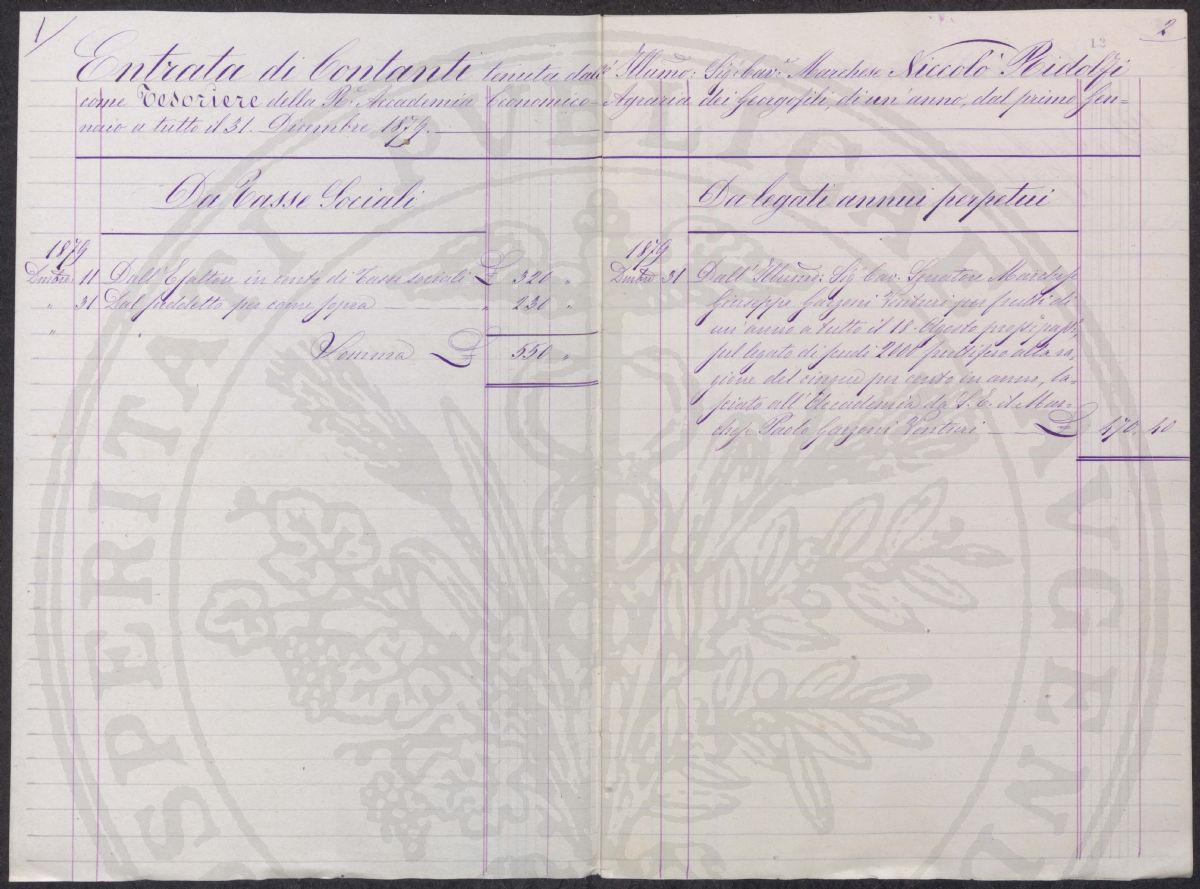 1/
2
12
Entrata di Contanti tenuta dall' Illumo: Sig. Cav.e Marchese Niccolò Ridolfi
come Tesoriere della R.e Accademia Economico-Agraria dei Georgofili, di un'anno, dal primo Gen-
naio a tutto il 31. Dicembre 1879.
Da Tasse Sociali
1879
Dmbre 11 Dall' Esattore in conto di Tasse sociali £ 320 "
" 31 Dal suddetto per come sopra " 230 "
" "
" Somma £ 550 "
Da legati annui perpetui
1879
Dmbre 31 Dall' Illumo: Sig. Cav. Senatore Marchese
Giuseppe Garzoni Venturi per frutti di
un' anno a tutto il 18. Agosto pross. pass.,
sul legato di scudi 2000 fruttifero alla ra-
gione del cinque per cento in anno, la-
sciato all' Accademia da S. E. il Mar-
chese Paolo Garzoni Venturi £ 470. 40
PROSPERITATI PVBLICAE AVGENDAE